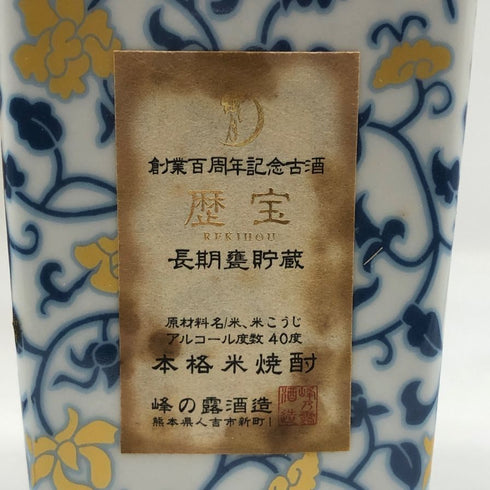 創業百周年記念古酒
歴宝
REKIHOU
長期甕貯蔵
原材料名/米、米こうじ
アルコール度数 40度
本格米焼酎
峰の露酒造
熊本県人吉市新町1
峰乃露
酒造